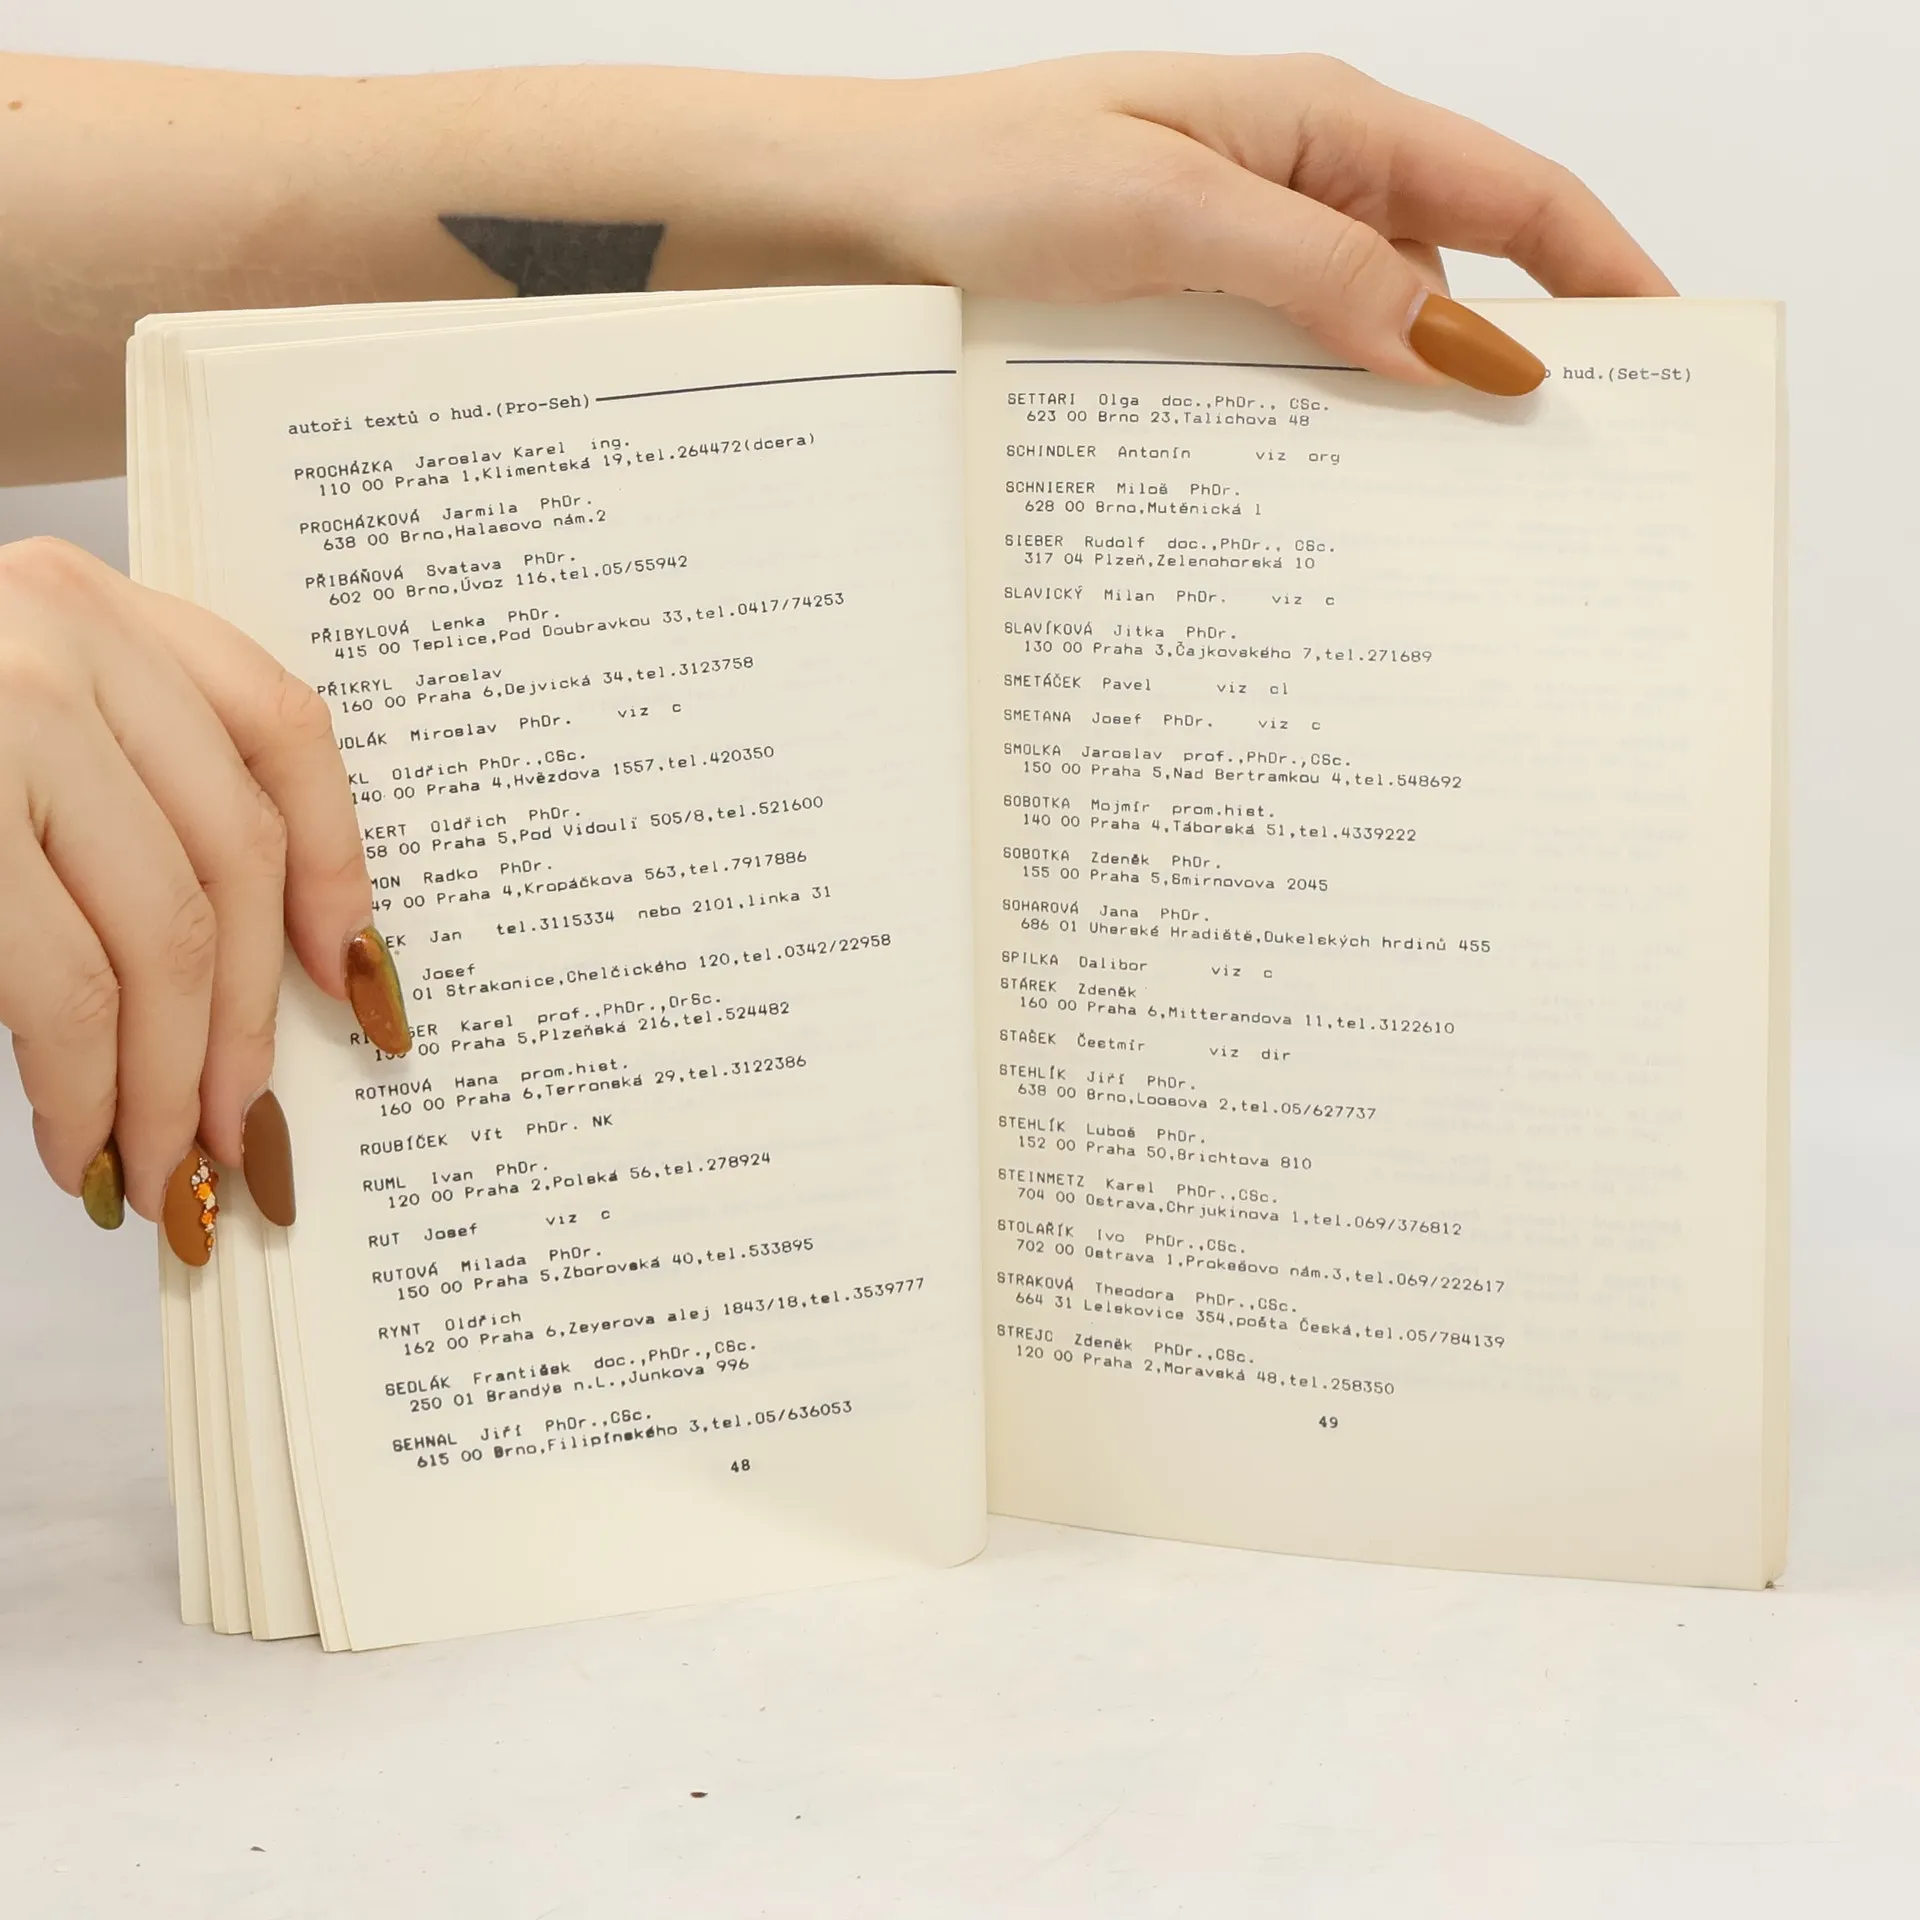 autoři textů o hud.(Pro-Seh)
PROCHÁZKA Jaroslav Karel ing.
110 00 Praha 1,Klimentská 19,tel.264472(dcera)
PROCHÁZKOVÁ Jarmila PhDr.
638 00 Brno,Halasovo nám.2
PŘIBÁŇOVÁ Svatava PhDr.
602 00 Brno,Úvoz 116,tel.05/55942
PŘIBYLOVÁ Lenka PhDr.
415 00 Teplice,Pod Doubravkou 33,tel.0417/74253
PŘIKRYL Jaroslav
160 00 Praha 6,Dejvická 34,tel.3123758
Miroslav PhDr. viz c
Oldřich PhDr.,CSc.
140 00 Praha 4,Hvězdova 1557,tel.420350
Oldřich PhDr.
00 Praha 5,Pod Vidoulí 505/8,tel.521600
Radko PhDr.
00 Praha 4,Kropáčkova 563,tel.7917886
Jan tel.3115334 nebo 2101,linka 31
Josef
01 Strakonice,Chelčického 120,tel.0342/22958
Karel prof.,PhDr.,DrSc.
00 Praha 5,Plzeňská 216,tel.524482
ROTHOVÁ Hana prom.hist.
160 00 Praha 6,Terronská 29,tel.3122386
ROUBÍČEK Vít PhDr. NK
RUML Ivan PhDr.
120 00 Praha 2,Polská 56,tel.278924
RUT Josef viz c
RUTOVÁ Milada PhDr.
150 00 Praha 5,Zborovská 40,tel.533895
RYNT Oldřich
162 00 Praha 6,Zeyerova alej 1843/18,tel.3539777
SEDLÁK František doc.,PhDr.,CSc.
250 01 Brandýs n.L.,Junkova 996
SEHNAL Jiří PhDr.,CSc.
615 00 Brno,Filipínského 3,tel.05/636053
48
hud.(Set-St)
SETTARI Olga doc.,PhDr., CSc.
623 00 Brno 23,Talichova 48
SCHINDLER Antonín viz org
SCHNIERER Miloš PhDr.
628 00 Brno,Mutěnická 1
SIEBER Rudolf doc.,PhDr., CSc.
317 04 Plzeň,Zelenohorská 10
SLAVICKÝ Milan PhDr. viz c
SLAVÍKOVÁ Jitka PhDr.
130 00 Praha 3,Čajkovského 7,tel.271689
SMETÁČEK Pavel viz cl
SMETANA Josef PhDr. viz c
SMOLKA Jaroslav prof.,PhDr.,CSc.
150 00 Praha 5,Nad Bertramkou 4,tel.548692
SOBOTKA Mojmír prom.hist.
140 00 Praha 4,Táborská 51,tel.4339222
SOBOTKA Zdeněk PhDr.
155 00 Praha 5,Smirnovova 2045
SOHAROVÁ Jana PhDr.
686 01 Uherské Hradiště,Dukelských hrdinů 455
SPILKA Dalibor viz c
STÁREK Zdeněk
160 00 Praha 6,Mitterandova 11,tel.3122610
STAŠEK Čestmír viz dir
STEHLÍK Jiří PhDr.
638 00 Brno,Loosova 2,tel.05/627737
STEHLÍK Luboš PhDr.
152 00 Praha 50,Brichtova 810
STEINMETZ Karel PhDr.,CSc.
704 00 Ostrava,Chrjukinova 1,tel.069/376812
STOLAŘÍK Ivo PhDr.,CSc.
702 00 Ostrava 1,Prokešovo nám.3,tel.069/222617
STRAKOVÁ Theodora PhDr.,CSc.
664 31 Lelekovice 354,pošta Česká,tel.05/784139
STREJC Zdeněk PhDr.,CSc.
120 00 Praha 2,Moravská 48,tel.258350
49